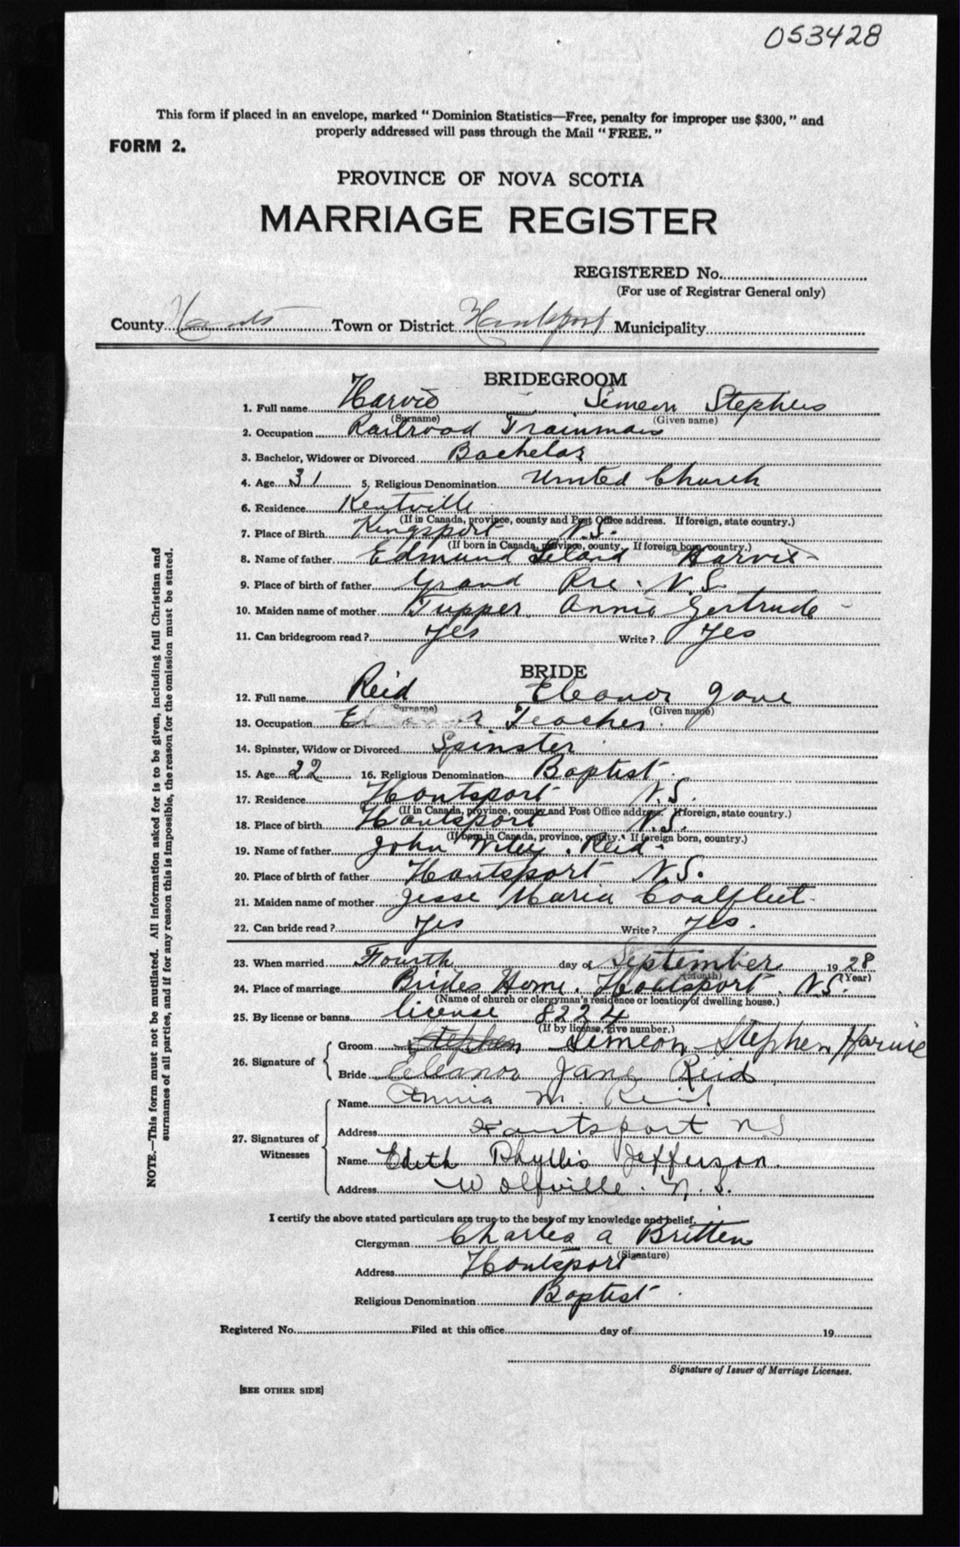 053428
This form if placed in an envelope, marked "Dominion Statistics—Free, penalty for improper use $300," and
properly addressed will pass through the Mail "FREE."
FORM 2.
PROVINCE OF NOVA SCOTIA
MARRIAGE REGISTER
REGISTERED No.
(For use of Registrar General only)
County Hants Town or District Hantsport Municipality
BRIDEGROOM
1. Full name Harvie Simeon Stephen
(Surname) (Given name)
2. Occupation Railroad Trainman
3. Bachelor, Widower or Divorced Bachelor
4. Age 31 5. Religious Denomination United Church
6. Residence Kentville
(If in Canada, province, county and Post Office address. If foreign, state country.)
7. Place of Birth Kingsport N.S.
(If born in Canada, province, county. If foreign born, country.)
8. Name of father Edmund Leland Harvie
9. Place of birth of father Grand Pre. N.S.
10. Maiden name of mother Tupper Annie Gertrude
11. Can bridegroom read? Yes Write? Yes
BRIDE
12. Full name Reid Eleanor Jane
(Surname) (Given name)
13. Occupation Teacher
14. Spinster, Widow or Divorced Spinster
15. Age 22 16. Religious Denomination Baptist
17. Residence Hantsport N.S.
(If in Canada, province, county and Post Office address. If foreign, state country.)
18. Place of birth Hantsport N.S.
(If born in Canada, province, county. If foreign born, country.)
19. Name of father John Wiley Reid
20. Place of birth of father Hantsport N.S.
21. Maiden name of mother Jesse Maria Coalfleet
22. Can bride read? Yes Write? Yes.
23. When married Fourth day of September 1928
(Month) (Year)
24. Place of marriage Brides Home. Hantsport. N.S.
(Name of church or clergyman's residence or location of dwelling house.)
25. By license or banns license 8224
(If by license, give number.)
26. Signature of
Groom Stephen Simeon Stephen Harvie
Bride Eleanor Jane Reid
27. Signatures of Witnesses
Name Annie M. Reid
Address Hantsport N.S.
Name Edith Phyllis Jefferson.
Address Wolfville. N.S.
I certify the above stated particulars are true to the best of my knowledge and belief.
Clergyman Charles A Britten
(Signature)
Address Hantsport
Religious Denomination Baptist
Registered No. Filed at this office day of 19
Signature of Issuer of Marriage Licenses.
[SEE OTHER SIDE]
NOTE.—This form must not be mutilated. All information asked for is to be given, including full Christian and
surnames of all parties, and if for any reason this is impossible, the reason for the omission must be stated.